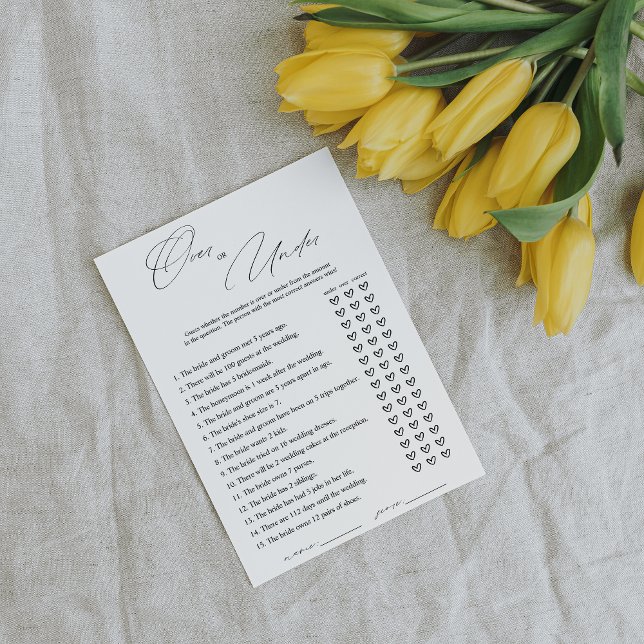 Over OR Under
Guess whether the number is over or under from the amount
in the question. The person with the most correct answers wins!
under over correct
1. The bride and groom met 5 years ago.
2. There will be 100 guests at the wedding.
3. The bride has 5 bridesmaids.
4. The honeymoon is 1 week after the wedding.
5. The bride and groom are 3 years apart in age.
6. The bride's shoe size is 7.
7. The bride and groom have been on 5 trips together.
8. The bride wants 2 kids.
9. The bride tried on 16 wedding dresses.
10. There will be 2 wedding cakes at the reception.
11. The bride owns 7 purses.
12. The bride has 2 siblings.
13. The bride has had 5 jobs in her life.
14. There are 112 days until the wedding.
15. The bride owns 12 pairs of shoes.
name: score: